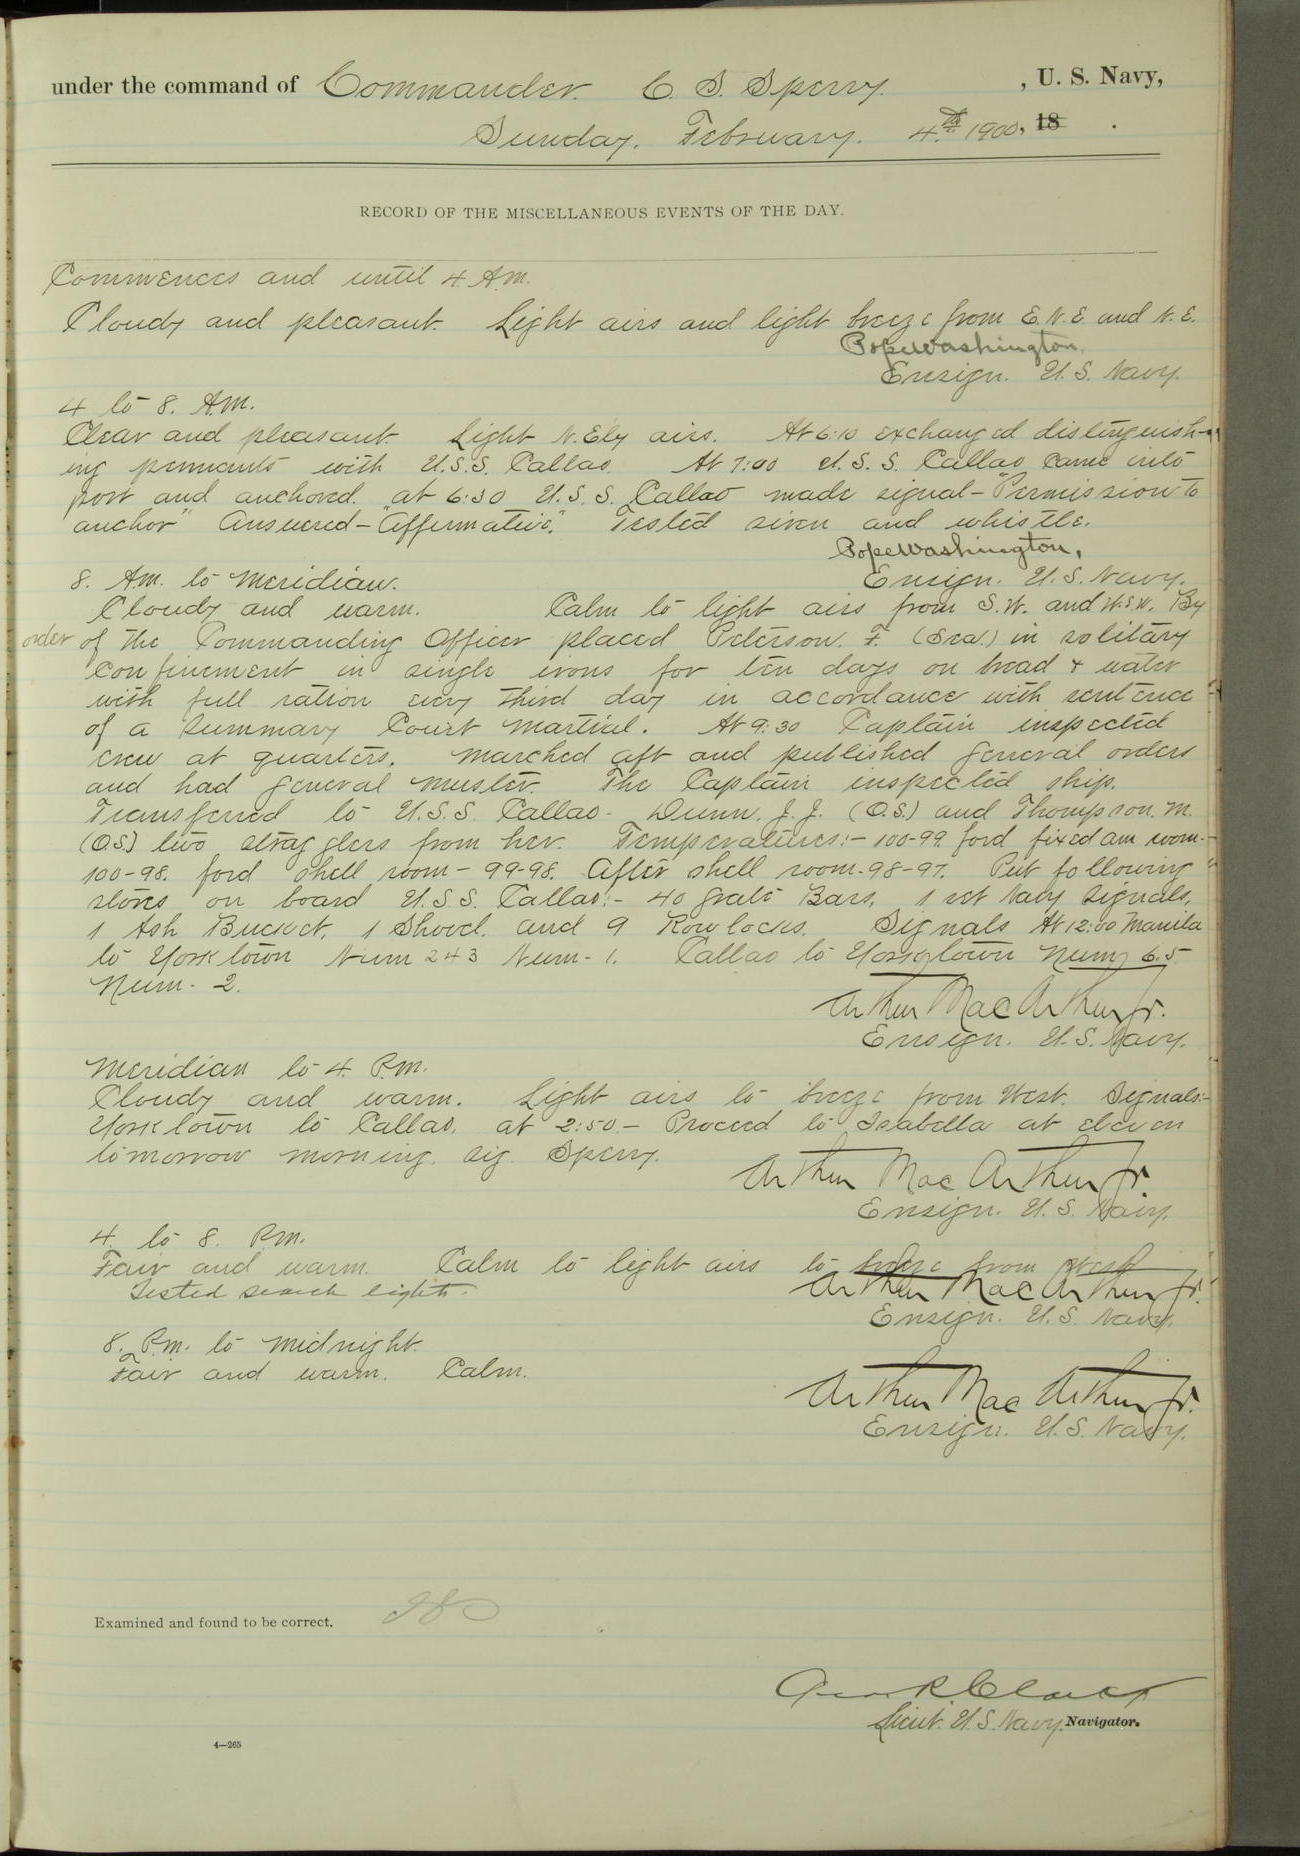 under the command of Commander. C. S. Sperry. , U. S. Navy,
Sunday. February. 4th 1900, 18 .
RECORD OF THE MISCELLANEOUS EVENTS OF THE DAY.
Commences and until 4 A.M.
Cloudy and pleasant. Light airs and light breeze from E.N.E. and N.E.
Pope Washington.
Ensign. U.S. Navy.
4 to 8. A.M.
Clear and pleasant. Light N.Ely airs. At 6:10 exchanged distinguish-
ing pennants with U.S.S. Callao. At 7:00 U.S.S. Callao came into
port and anchored. at 6:30 U.S.S. Callao made signal - "Permission to
anchor" Answered - "Affirmative." Tested siren and whistle.
Pope Washington,
Ensign. U.S. Navy.
8. A.M. to Meridian.
Cloudy and warm. Calm to light airs from S.W. and W.S.W. By
order of the Commanding Officer placed Peterson. F. (Sea.) in solitary
confinement in single irons for ten days on bread & water
with full ration every third day in accordance with sentence
of a Summary Court Martial. At 9:30 Captain inspected
crew at quarters. Marched aft and published general orders
and had general muster. The Captain inspected ship.
Transferred to U.S.S. Callao - Dunn. J.J. (O.S.) and Thompson. M.
(O.S.) two stragglers from her. Temperatures:- 100-99. ford fixed am room -
100-98. ford shell room - 99-98. After shell room - 98-97. Put following
stores on board U.S.S. Callao:- 40 Grate Bars, 1 set Navy Signals,
1 Ash Bucket, 1 Shovel. and 9 Rowlocks. Signals At 12:00 Manila
to Yorktown Num 243 Num - 1. Callao to Yorktown Num 65
Num - 2.
Arthur MacArthur Jr.
Ensign. U.S. Navy.
Meridian to 4 P.M.
Cloudy and warm. Light airs to breeze from West. Signals:-
Yorktown to Callao. at 2:50 - Proceed to Isabella at eleven
tomorrow morning. sig. Sperry.
Arthur MacArthur Jr.
Ensign. U.S. Navy.
4 to 8 P.M.
Fair and warm. Calm to light airs to breeze from West
Tested search lights.
Arthur MacArthur Jr.
Ensign. U.S. Navy.
8. P.M. to Midnight.
Fair and warm. Calm.
Arthur MacArthur Jr.
Ensign. U.S. Navy.
Examined and found to be correct.
Geo R Clark
Lieut. U.S. Navy. Navigator.
4—265